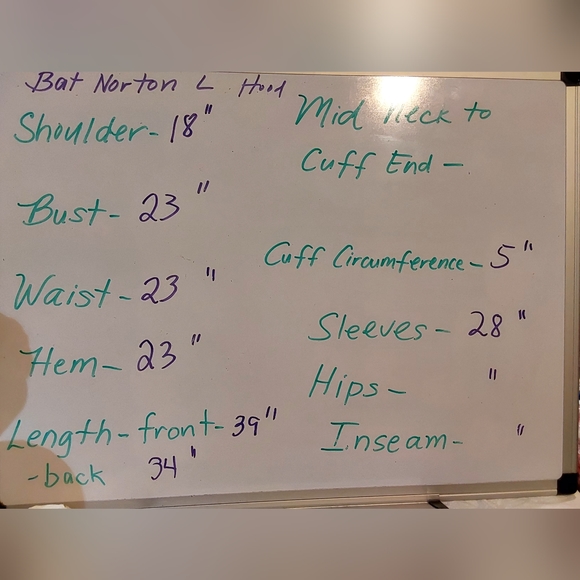 Bat Norton L Hood
Shoulder- 18"
Bust- 23"
Waist- 23"
Hem- 23"
Length- front- 39"
-back 34"
Mid Neck to
Cuff End -
Cuff Circumference- 5"
Sleeves- 28"
Hips- "
Inseam- "